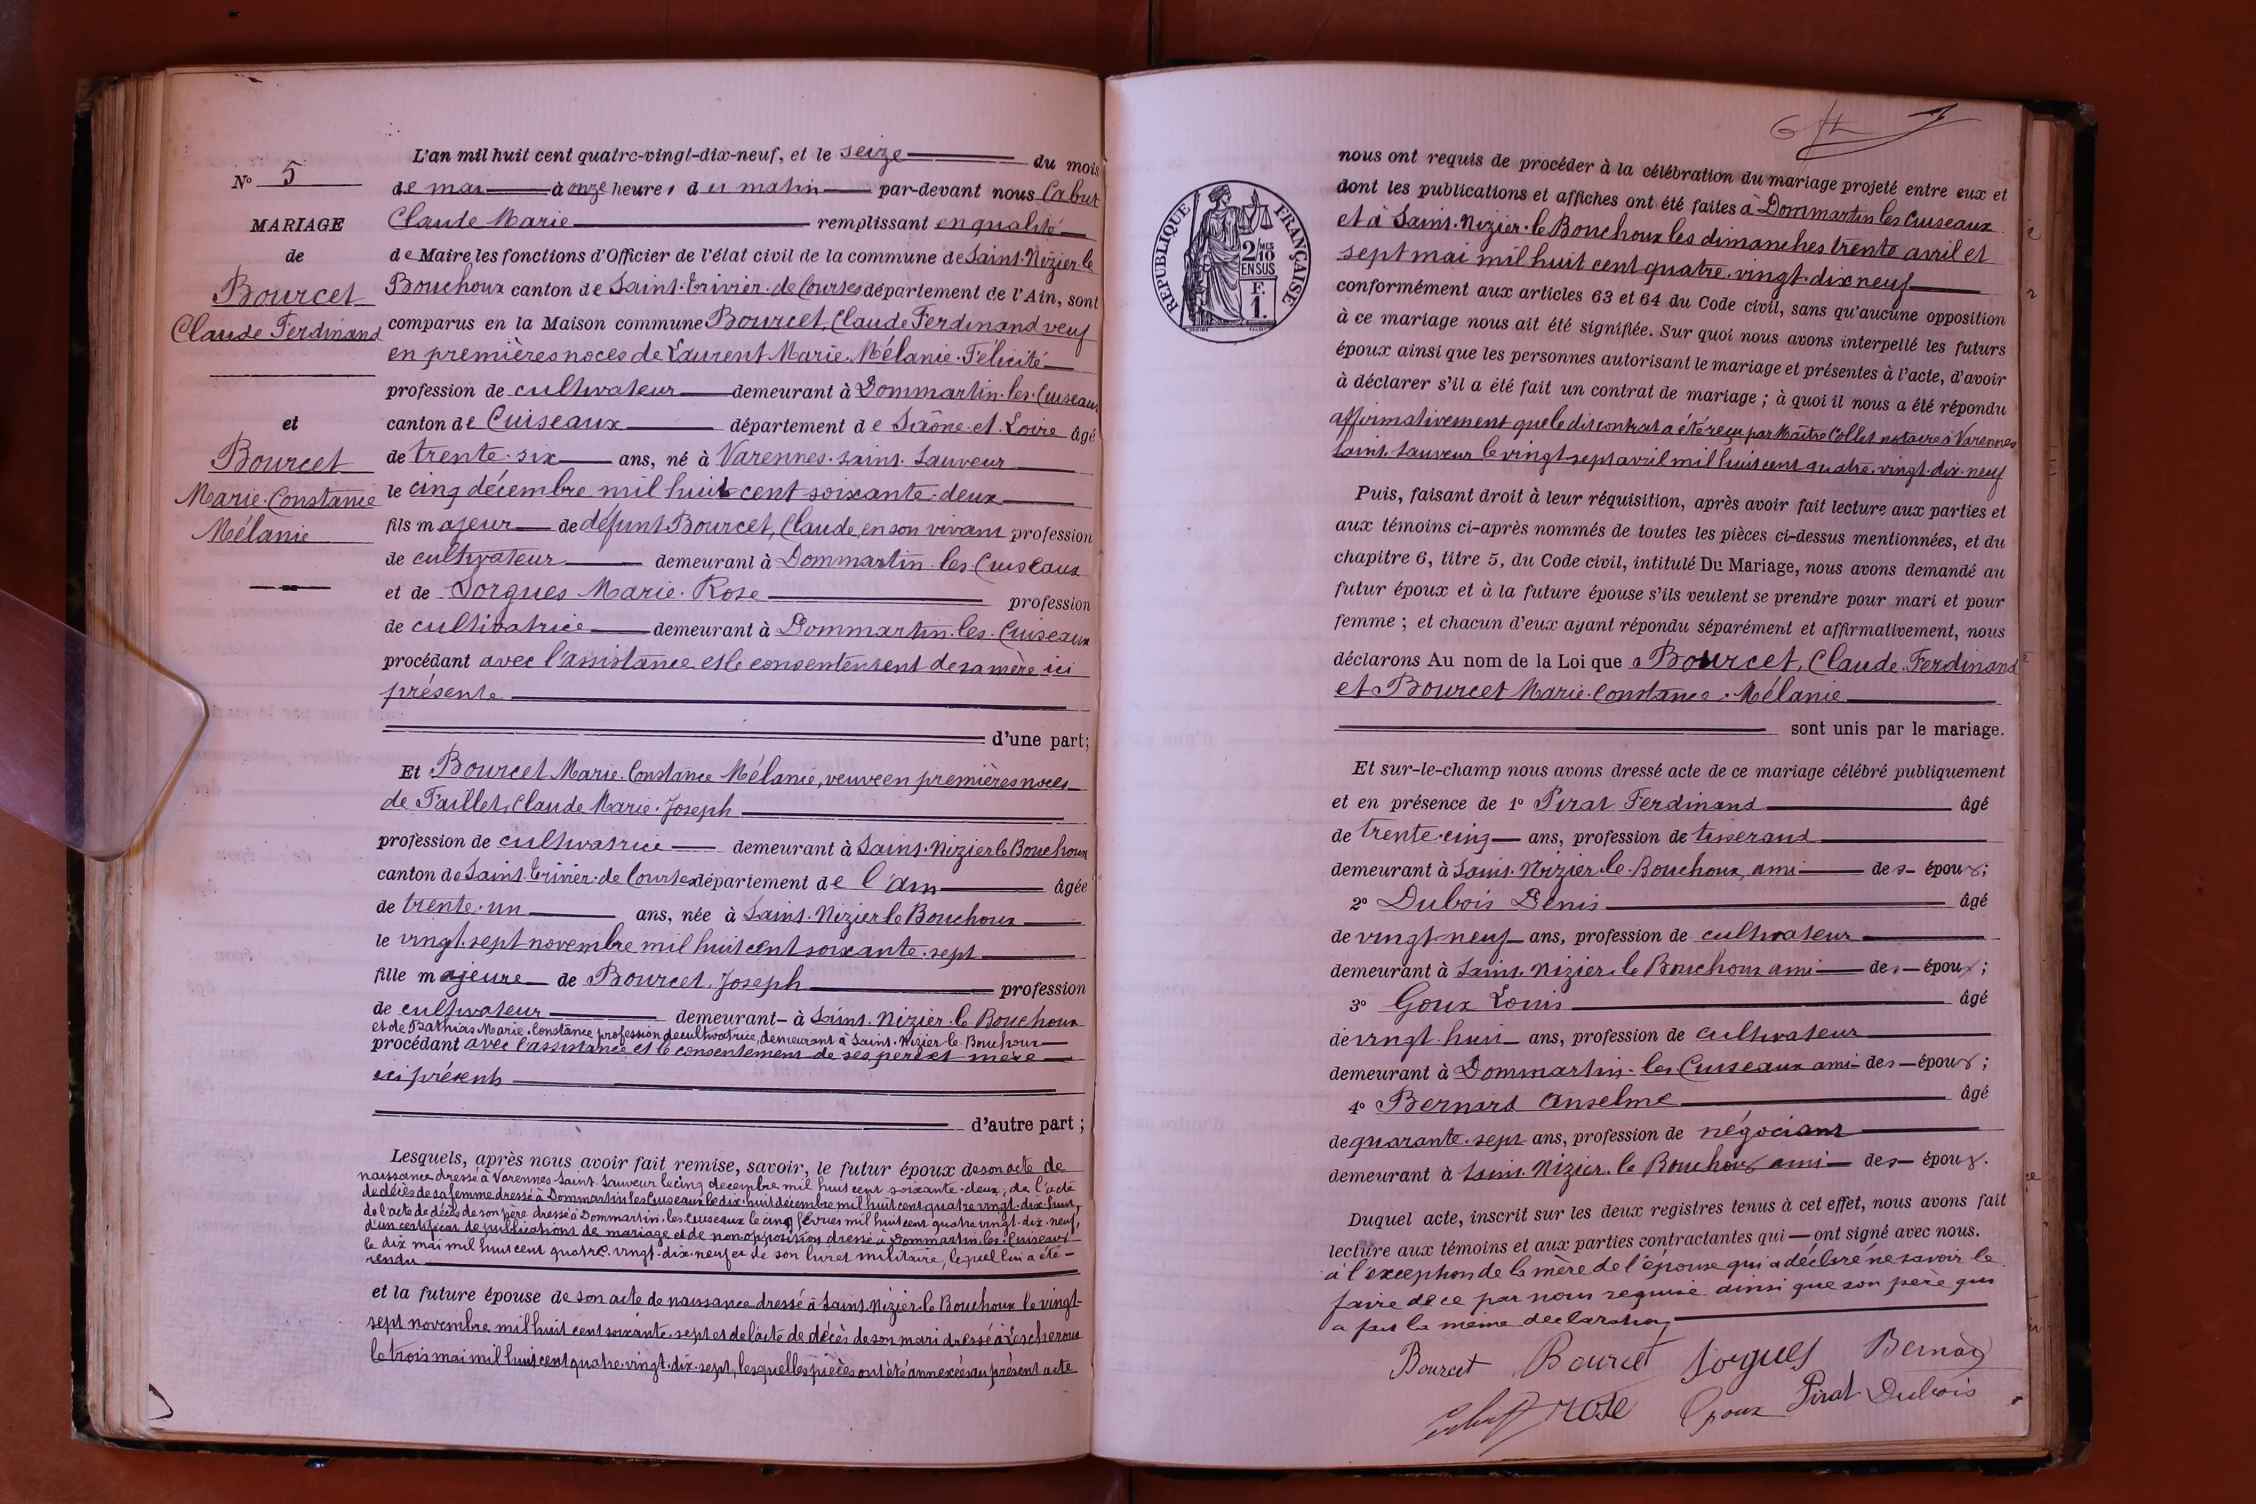 N° 5
MARIAGE
de
Bourcet
Claude Ferdinand
et
Bourcet
Marie-Constance
Mélanie
L'an mil huit cent quatre-vingt-dix-neuf, et le seize du mois
de mai à onze heures du matin par-devant nous Cabut
Claude Marie remplissant en qualité
de Maire les fonctions d'Officier de l'état civil de la commune de Saint-Nizier le
Bouchoux canton de Saint-Trivier-de Courtes département de l'Ain, sont
comparus en la Maison commune Bourcet, Claude Ferdinand veuf
en premières noces de Laurent Marie Mélanie Félicité
profession de cultivateur demeurant à Dommartin-les-Cuiseaux
canton de Cuiseaux département de Saône-et-Loire âgé
de trente-six ans, né à Varennes-Saint-Sauveur
le cinq décembre mil huit cent soixante-deux
fils majeur de défunt Bourcet, Claude, en son vivant profession
de cultivateur demeurant à Dommartin les Cuiseaux
et de Sorgues Marie-Rose profession
de cultivatrice demeurant à Dommartin-les-Cuiseaux
procédant avec l'assistance et le consentement de sa mère ici
présente
d'une part;
Et Bourcet Marie-Constance Mélanie, veuve en premières noces
de Faillet, Claude Marie-Joseph
profession de cultivatrice demeurant à Saint-Nizier le Bouchoux
canton de Saint-Trivier-de Courtes département de l'Ain âgée
de trente-un ans, née à Saint-Nizier le Bouchoux
le vingt-sept novembre mil huit cent soixante-sept
fille majeure de Bourcet, Joseph profession
de cultivateur demeurant à Saint-Nizier-le Bouchoux
et de Pathias Marie-Constance profession de cultivatrice, demeurant à Saint-Nizier-le-Bouchoux
procédant avec l'assistance et le consentement de ses père et mère
ici présents
d'autre part;
Lesquels, après nous avoir fait remise, savoir, le futur époux de son acte de
naissance dressé à Varennes-Saint-Sauveur le cinq décembre mil huit cent soixante-deux, de l'acte
de décès de sa femme dressé à Dommartin les Cuiseaux le dix-huit décembre mil huit cent quatre vingt-dix-huit,
de l'acte de décès de son père dressé à Dommartin-les-Cuiseaux le cinq février mil huit cent quatre vingt-dix-neuf,
d'un certificat de publications de mariage et de non opposition dressé à Dommartin-les-Cuiseaux
le dix mai mil huit cent quatre-vingt-dix-neuf et de son livret militaire, lequel lui a été
rendu
et la future épouse de son acte de naissance dressé à Saint-Nizier-le Bouchoux le vingt-
sept novembre mil huit cent soixante-sept et de l'acte de décès de son mari dressé à Lescheroux
le trois mai mil huit cent quatre-vingt-dix-sept, lesquelles pièces ont été annexées au présent acte
RÉPUBLIQUE FRANÇAISE
2/10 EN SUS
F. 1.
nous ont requis de procéder à la célébration du mariage projeté entre eux et
dont les publications et affiches ont été faites à Dommartin les Cuiseaux
et à Saint-Nizier-le Bouchoux les dimanches trente avril et
sept mai mil huit cent quatre-vingt-dix neuf
conformément aux articles 63 et 64 du Code civil, sans qu'aucune opposition
à ce mariage nous ait été signifiée. Sur quoi nous avons interpellé les futurs
époux ainsi que les personnes autorisant le mariage et présentes à l'acte, d'avoir
à déclarer s'il a été fait un contrat de mariage ; à quoi il nous a été répondu
affirmativement que le dit contrat a été reçu par Maître Collet notaire à Varennes
Saint-Sauveur le vingt sept avril mil huit cent quatre-vingt-dix-neuf
Puis, faisant droit à leur réquisition, après avoir fait lecture aux parties et
aux témoins ci-après nommés de toutes les pièces ci-dessus mentionnées, et du
chapitre 6, titre 5, du Code civil, intitulé Du Mariage, nous avons demandé au
futur époux et à la future épouse s'ils veulent se prendre pour mari et pour
femme ; et chacun d'eux ayant répondu séparément et affirmativement, nous
déclarons Au nom de la Loi que Bourcet, Claude Ferdinand
et Bourcet Marie-Constance-Mélanie
sont unis par le mariage.
Et sur-le-champ nous avons dressé acte de ce mariage célébré publiquement
et en présence de 1° Pirat Ferdinand âgé
de trente-cinq ans, profession de tisserand
demeurant à Saint-Nizier-le-Bouchoux, ami des époux;
2° Dubois Denis âgé
de vingt-neuf ans, profession de cultivateur
demeurant à Saint-Nizier-le Bouchoux ami des époux;
3° Goux Louis âgé
de vingt-huit ans, profession de cultivateur
demeurant à Dommartin-les Cuiseaux ami des époux;
4° Bernard Anselme âgé
de quarante-sept ans, profession de négociant
demeurant à Saint-Nizier-le Bouchoux ami des époux.
Duquel acte, inscrit sur les deux registres tenus à cet effet, nous avons fait
lecture aux témoins et aux parties contractantes qui ont signé avec nous.
à l'exception de la mère de l'épouse qui a déclaré ne savoir le
faire de ce par nous requise ainsi que son père qui
a fait la même déclaration
Bourcet Bourcet Sorgues Bernard
rose Goux Pirat Dubois